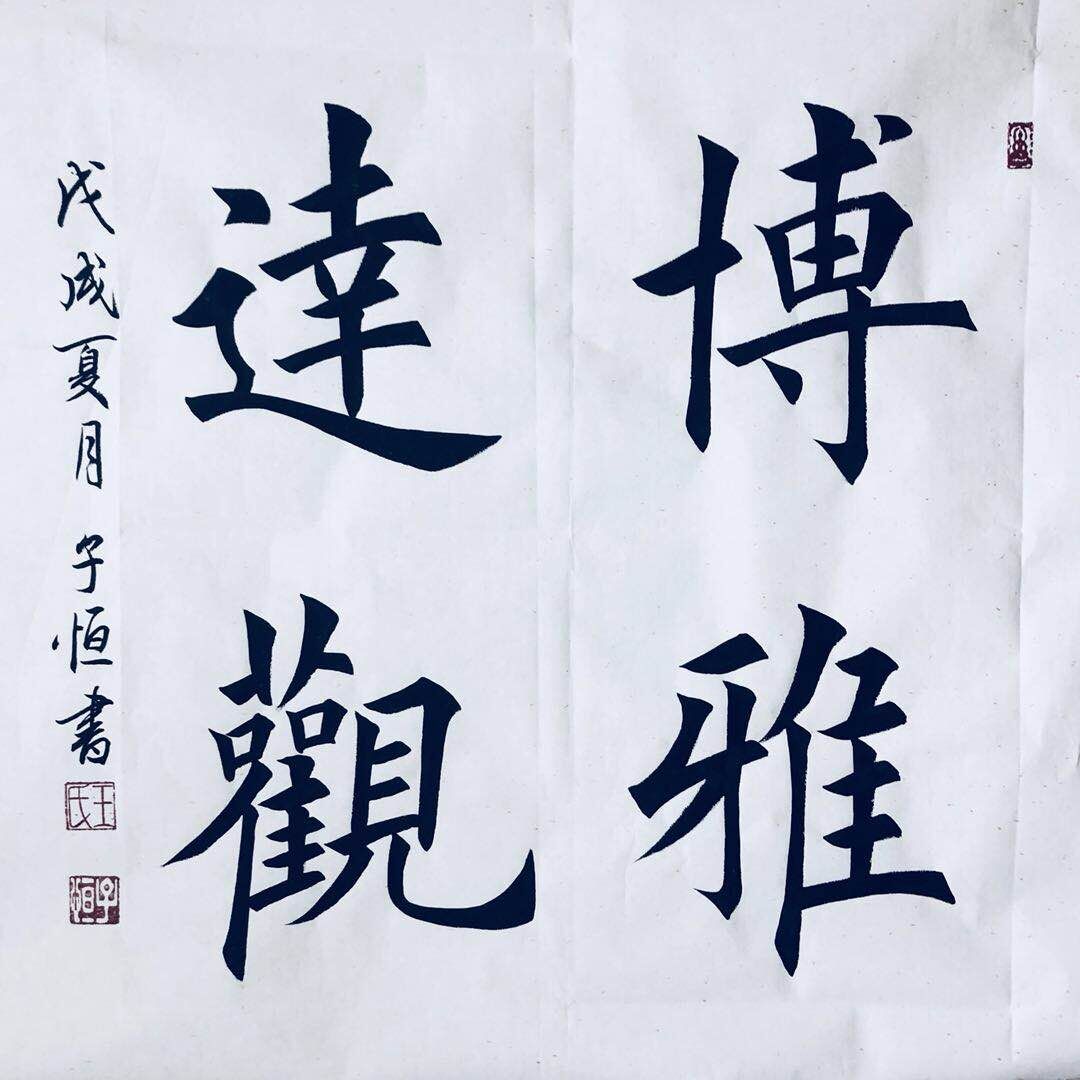 博雅
達觀
戊戌夏月 子恒書
王氏
子恒